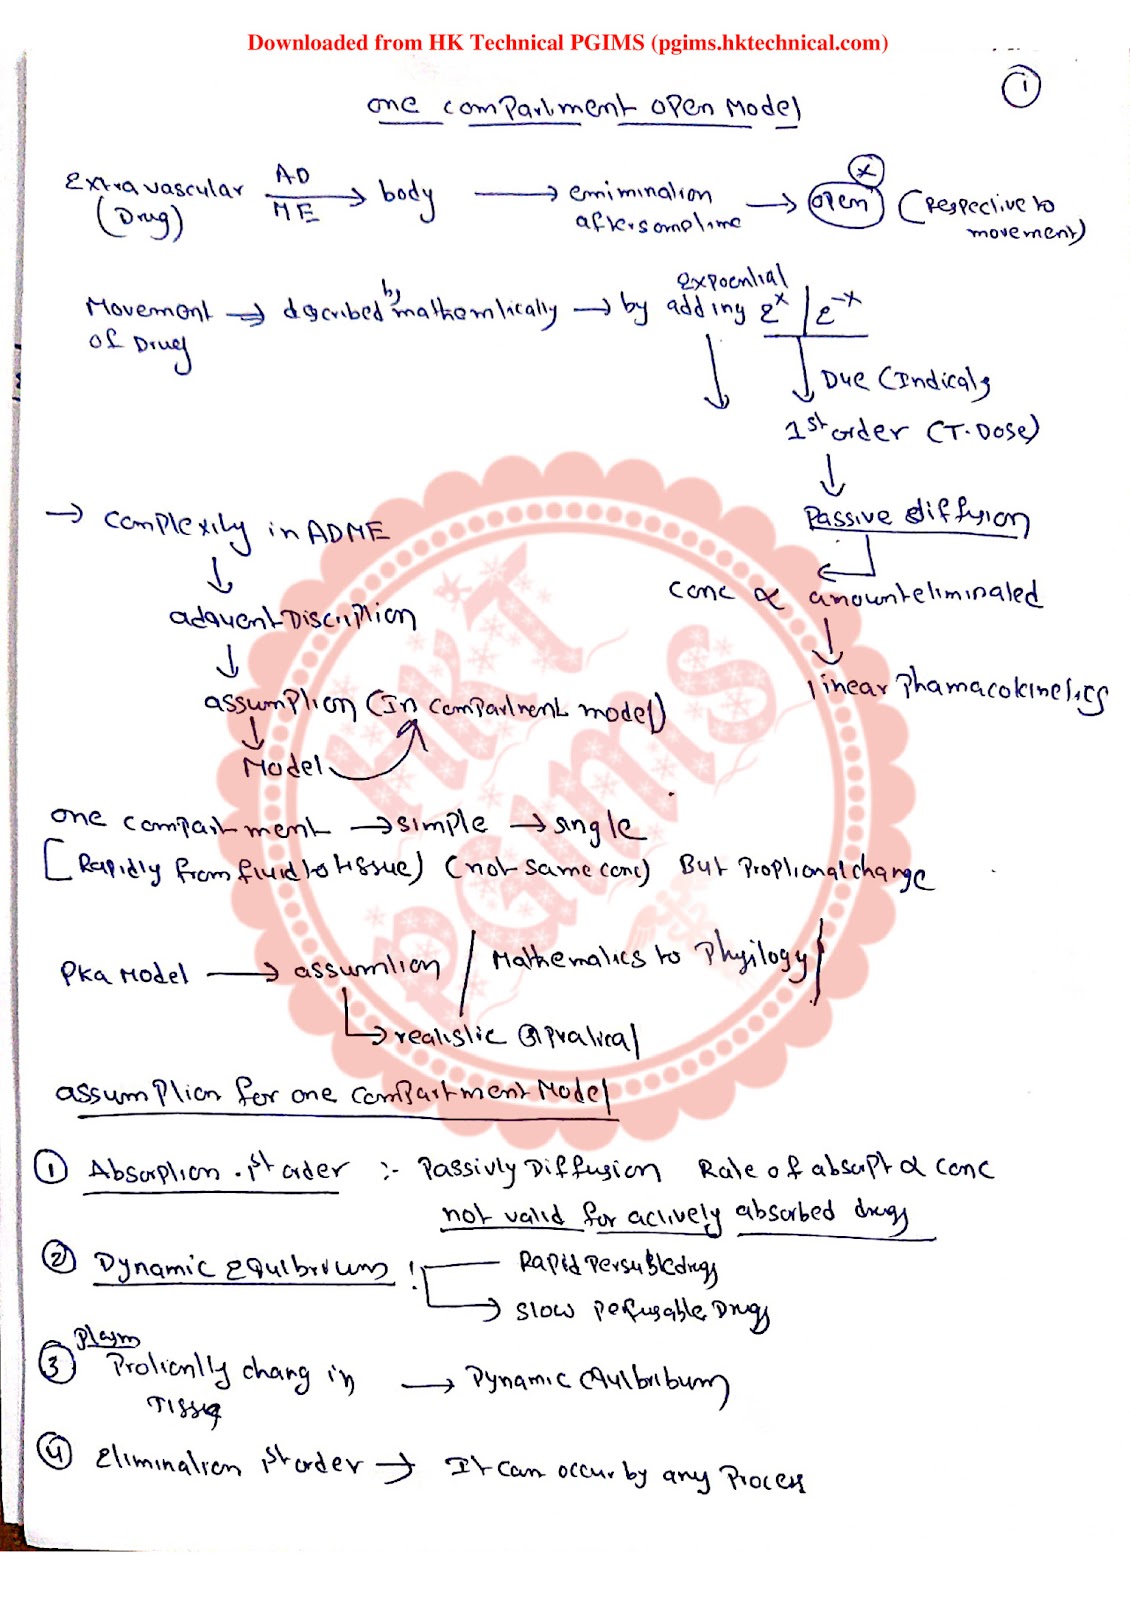 Downloaded from HK Technical PGIMS (pgims.hktechnical.com)
1
one compartment open Model
Extravascular AD/ME → body → emimination → open (respective to
(Drug) aftersometime x movement)
expoential
Movement → described by mathemtically → by adding e^x / e^-x
of Drug
↓ ↓ Due (Indicals
1st order (T. Dose)
↓
→ complexity in ADME Passive diffusion
↓
conc ∝ amount eliminated
adquent Discription
↓ ↓
assumption (In compartment model) linear Phamacokinetics
↓
Model
one compartment → simple → single
[Rapidly from fluid to tissue) (not same conc) But Proptional change
Pka Model → assumtion / Mathematics to Phyilogy /
→ realistic @ Pratical
HKT PGIMS
assumption for one compartment Model
① Absorption 1st order :- Passivly Diffusion Rate of absorpt ∝ conc
not valid for actively absorbed drugs
② Dynamic equlbrium : Rapid Persuable drugs
→ slow perfusable Drugs
Plasm
③ Protionlly chang in → Dynamic equlbribum
Tissue
④ Elimination 1st order → It can occur by any Process